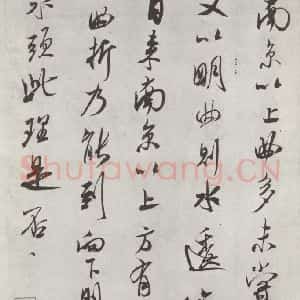 南京以上曲多未嘗
又以明曲則水透
首東南京以上方有
曲折乃能到向下明
頭此理是否
Shufawang.CN